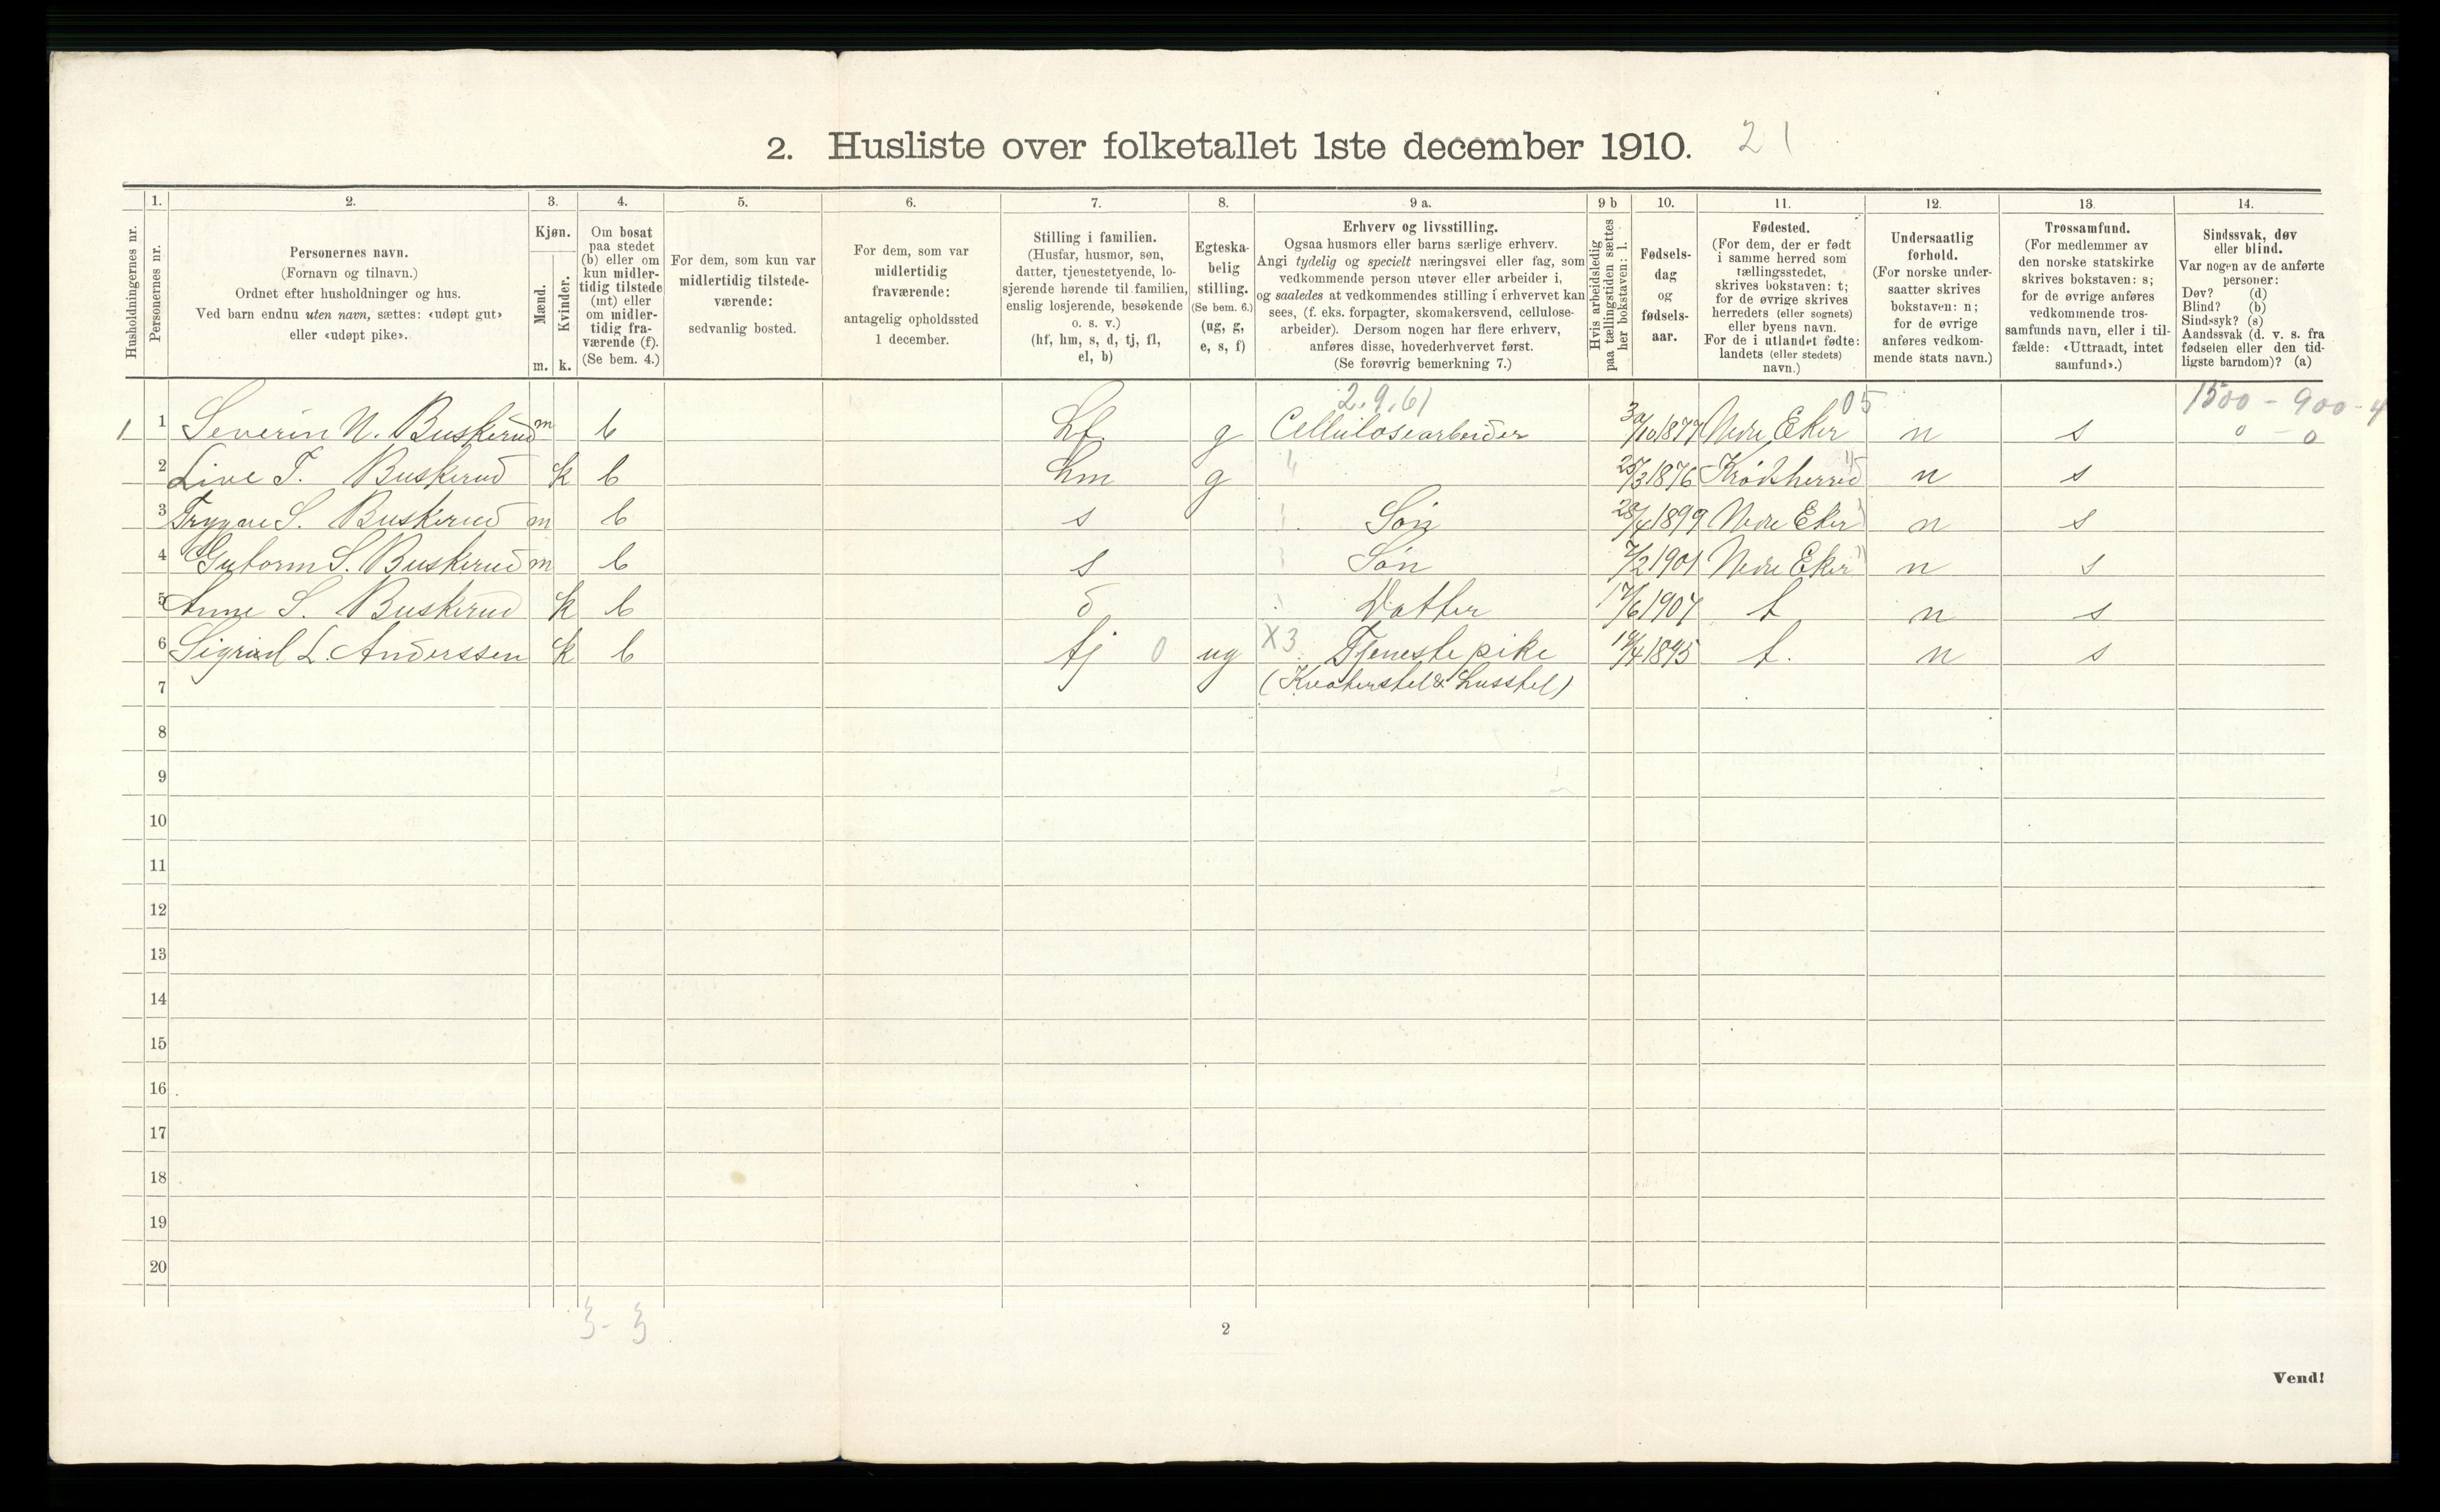 2. Husliste over folketallet 1ste december 1910. 21
Husholdningernes nr.
1.
Personernes nr.
2.
Personernes navn.
(Fornavn og tilnavn.)
Ordnet efter husholdninger og hus.
Ved barn endnu uten navn, sættes: «udøpt gut»
eller «udøpt pike».
3.
Kjøn.
Mænd.
Kvinder.
m. k.
4.
Om bosat
paa stedet
(b) eller om
kun midler-
tidig tilstede
(mt) eller
om midler-
tidig fra-
værende (f).
(Se bem. 4.)
5.
For dem, som kun var
midlertidig tilstede-
værende:
sedvanlig bosted.
6.
For dem, som var
midlertidig
fraværende:
antagelig opholdssted
1 december.
7.
Stilling i familien.
(Husfar, husmor, søn,
datter, tjenestetyende, lo-
sjerende hørende til familien,
enslig losjerende, besøkende
o. s. v.)
(hf, hm, s, d, tj, fl,
el, b)
8.
Egteska-
belig
stilling.
(Se bem. 6.)
(ug, g,
e, s, f)
9 a.
Erhverv og livsstilling.
Ogsaa husmors eller barns særlige erhverv.
Angi tydelig og specielt næringsvei eller fag, som
vedkommende person utøver eller arbeider i,
og saaledes at vedkommendes stilling i erhvervet kan
sees, (f. eks. forpagter, skomakersvend, cellulose-
arbeider). Dersom nogen har flere erhverv,
anføres disse, hovederhvervet først.
(Se forøvrig bemerkning 7.)
9 b
Hvis arbeidsledig
paa tællingstiden sættes
her bokstaven: l.
10.
Fødsels-
dag
og
fødsels-
aar.
11.
Fødested.
(For dem, der er født
i samme herred som
tællingsstedet,
skrives bokstaven: t;
for de øvrige skrives
herredets (eller sognets)
eller byens navn.
For de i utlandet fødte:
landets (eller stedets)
navn.)
12.
Undersaatlig
forhold.
(For norske under-
saatter skrives
bokstaven: n;
for de øvrige
anføres vedkom-
mende stats navn.)
13.
Trossamfund.
(For medlemmer av
den norske statskirke
skrives bokstaven: s;
for de øvrige anføres
vedkommende tros-
samfunds navn, eller i til-
fælde: «Uttraadt, intet
samfund».)
14.
Sindssvak, døv
eller blind.
Var nogen av de anførte
personer:
Døv? (d)
Blind? (b)
Sindssyk? (s)
Aandssvak (d. v. s. fra
fødselen eller den tid-
ligste barndom)? (a)
2.9.61 05 1500 - 900 - 4
1 1 Severin N. Buskerud m b hf. g Cellulosearbeider 30/10 1877 Nedre Eker n s 0 - 0
2 Live T. Buskerud k b hm g 25/3 1876 Krødsherred n s
3 Trygve S. Buskerud m b s Søn 28/4 1899 Nedre Eker n s
4 Gutorm S. Buskerud m b s Søn 7/2 1901 Nedre Eker n s
5 Anne S. Buskerud k b d Datter 17/6 1907 t n s
6 Sigrid L. Anderssen k b tj 0 ug X3 Tjenestepike 14/4 1895 t. n s
7 (Kreaturstel & husstel)
8
9
10
11
12
13
14
15
16
17
18
19
20
3 - 3
2
Vend!